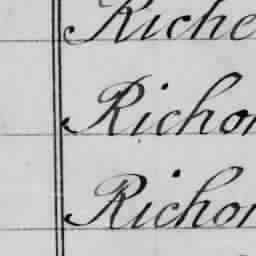 Riche
Richor
Richor